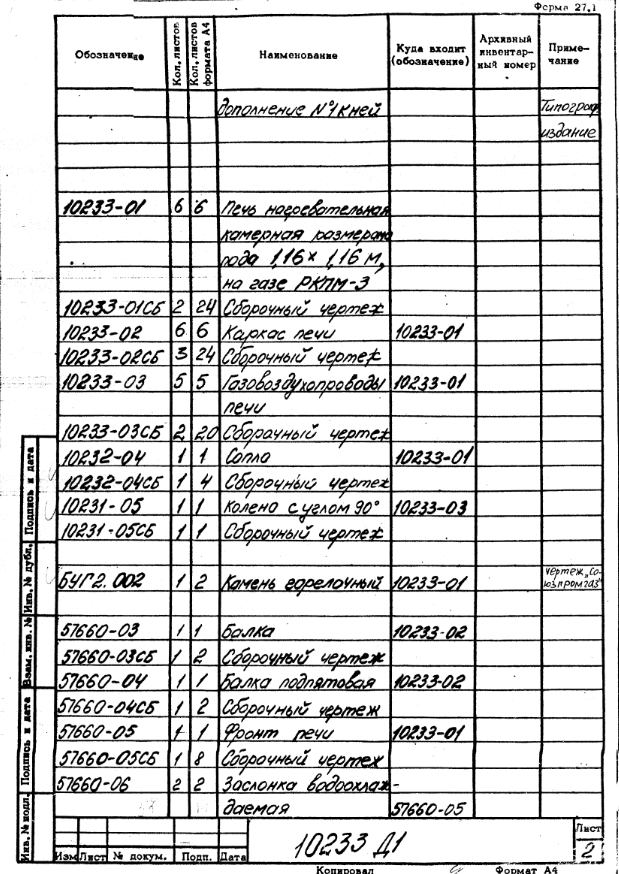 Форма 27.1
Обозначение Кол. листов Кол. листов формата А4 Наименование Куда входит (обозначение) Архивный инвентарный номер Примечание
дополнение №1 к ней Типограф.
издание
10233-01 6 6 Печь нагревательная
камерная размером
пода 1,16 × 1,16 м,
на газе РКПМ-3
10233-01СБ 2 24 Сборочный чертеж
10233-02 6 6 Каркас печи 10233-01
10233-02СБ 3 24 Сборочный чертеж
10233-03 5 5 Газовоздухопроводы 10233-01
печи
10233-03СБ 2 20 Сборочный чертеж
10232-04 1 1 Сопла 10233-01
10232-04СБ 1 4 Сборочный чертеж
10231-05 1 1 Колено с углом 90° 10233-03
10231-05СБ 1 1 Сборочный чертеж
БУГ2.002 1 2 Камень горелочный 10233-01 чертеж „Со-
юзпромгаз"
57660-03 1 1 Балка 10233-02
57660-03СБ 1 2 Сборочный чертеж
57660-04 1 1 Балка подпятовая 10233-02
57660-04СБ 1 2 Сборочный чертеж
57660-05 1 1 Фронт печи 10233-01
57660-05СБ 1 8 Сборочный чертеж
57660-06 2 2 Заслонка водоохлаж-
даемая 57660-05
Инв. № подл. Подпись и дата Взам. инв. № Инв. № дубл. Подпись и дата
Изм Лист № докум. Подп. Дата
10233 Д1
Лист
2
Копировал Формат А4